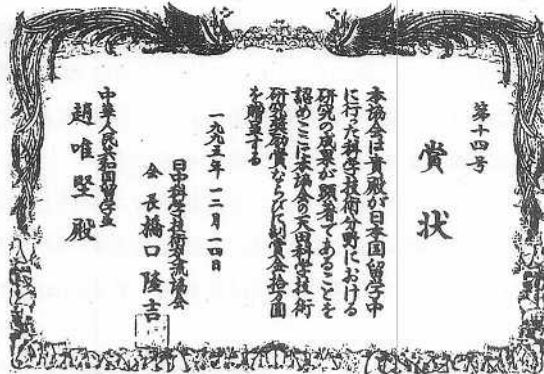 第十四号
賞状
本協会は貴殿が日本国留学中
に行った科学技術分野における
研究の成果が顕著であることを
認めここに本協会の天田科学技術
研究奨励賞ならびに副賞金拾万円
を贈呈する
一九九五年一二月一四日
日中科学技術交流協会
会長橋口隆吉
中華人民共和国留学生
趙唯堅殿